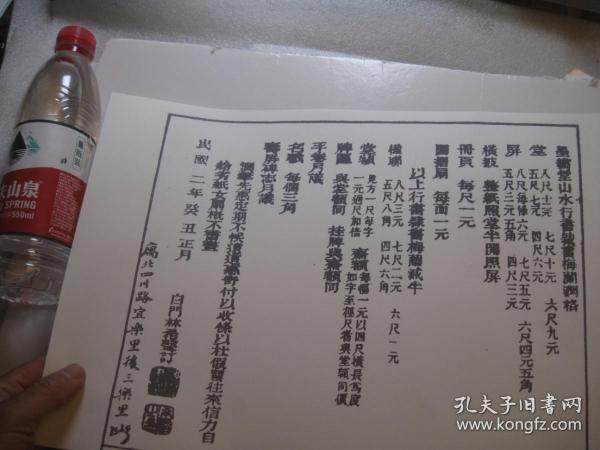 墨稼堂山水行書隸書梅蘭潤格
堂 八尺十二元 七尺十元 六尺九元
五尺七元 四尺六元
屏 八尺每條六元 七尺五元 六尺四元五角
五尺三元五角 四尺三元
橫披 整紙照堂半開照屏
冊頁 每尺一元
團摺扇 每面一元
以上行書隸書梅蘭減半
楹聯 八尺三元 七尺二元 六尺一元
五尺八角 四尺六角
堂額 見方一尺每字一元過尺加倍
齋額 每幅一元以四尺橫長為度如字至徑尺舊與堂額同價
牌匾 與堂額同 挂牌與齋額同
手卷另議
名戳 每個三角
壽屏碑志另議
潤筆先惠定期不候遠道惠寄付以收條以杜假冒往來信力自給劣紙女扇概不書畫
民國二年癸丑正月
白門林 訂
寓北四川路宜樂里後三樂里
山泉
SPRING
550ml
孔夫子旧书网
www.kongfz.com